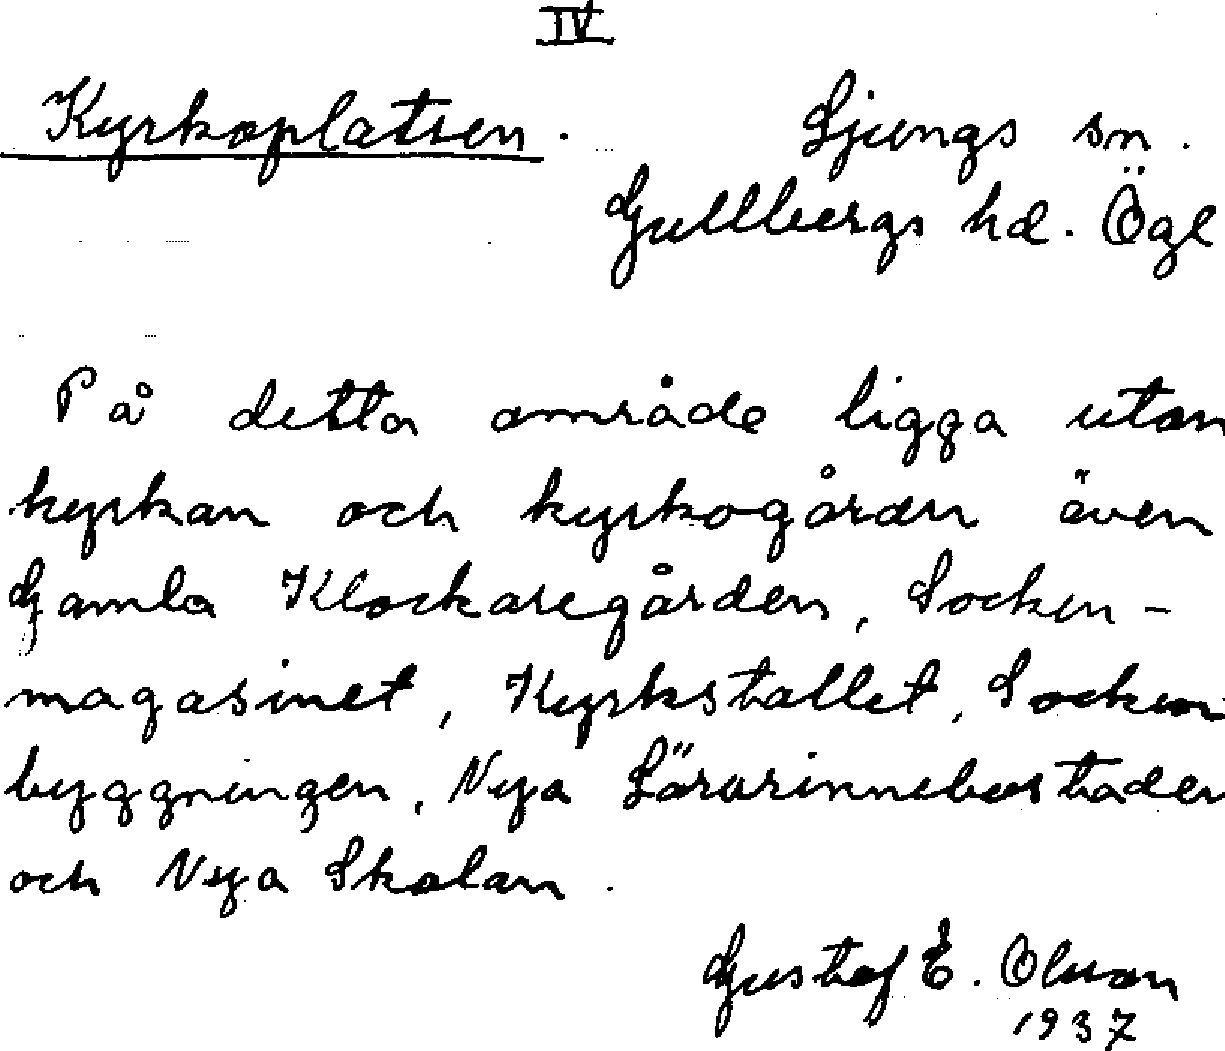 IV
Kyrkoplatsen. Ljungs sn.
Gullbergs hd. Ögl
På detta område ligga utom
kyrkan och kyrkogården även
Gamla Klockaregården, Socken-
magasinet, Kyrkstallet, Socken
byggningen, Nya Lärarinnebostaden
och Nya Skolan.
Gustaf E. Olsson
1937